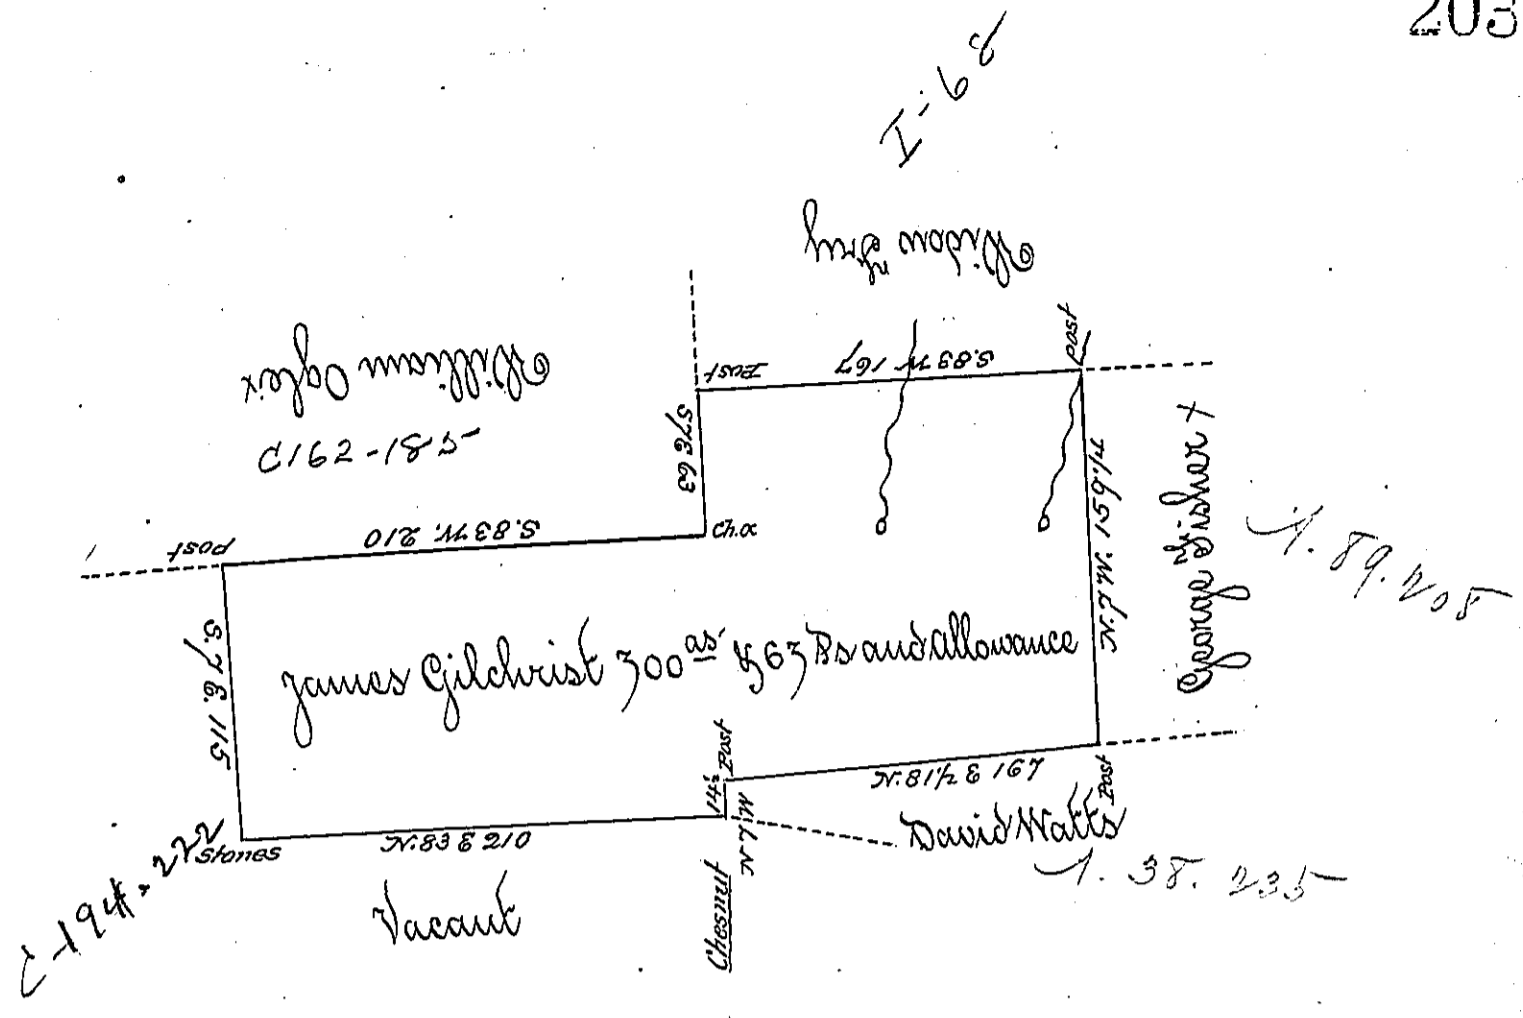 203
I-68
Widow Gray
William Ogle x
C162-185
Post
S.83 W 167
post
S7E 63
Ch.o.
S.83 W. 210
post
S.7 E. 115
N.7 W. 156 1/2
George Fisher +
A. 89. 208
James Gilchrist 300 as. & 63 Ps and allowance
14 1/2
Post
N 7 W
N. 81 1/2 E 167
Post
David Watts
A. 38. 235
Stones
N. 83 E 210
C-194-222
Vacant
Chesnut